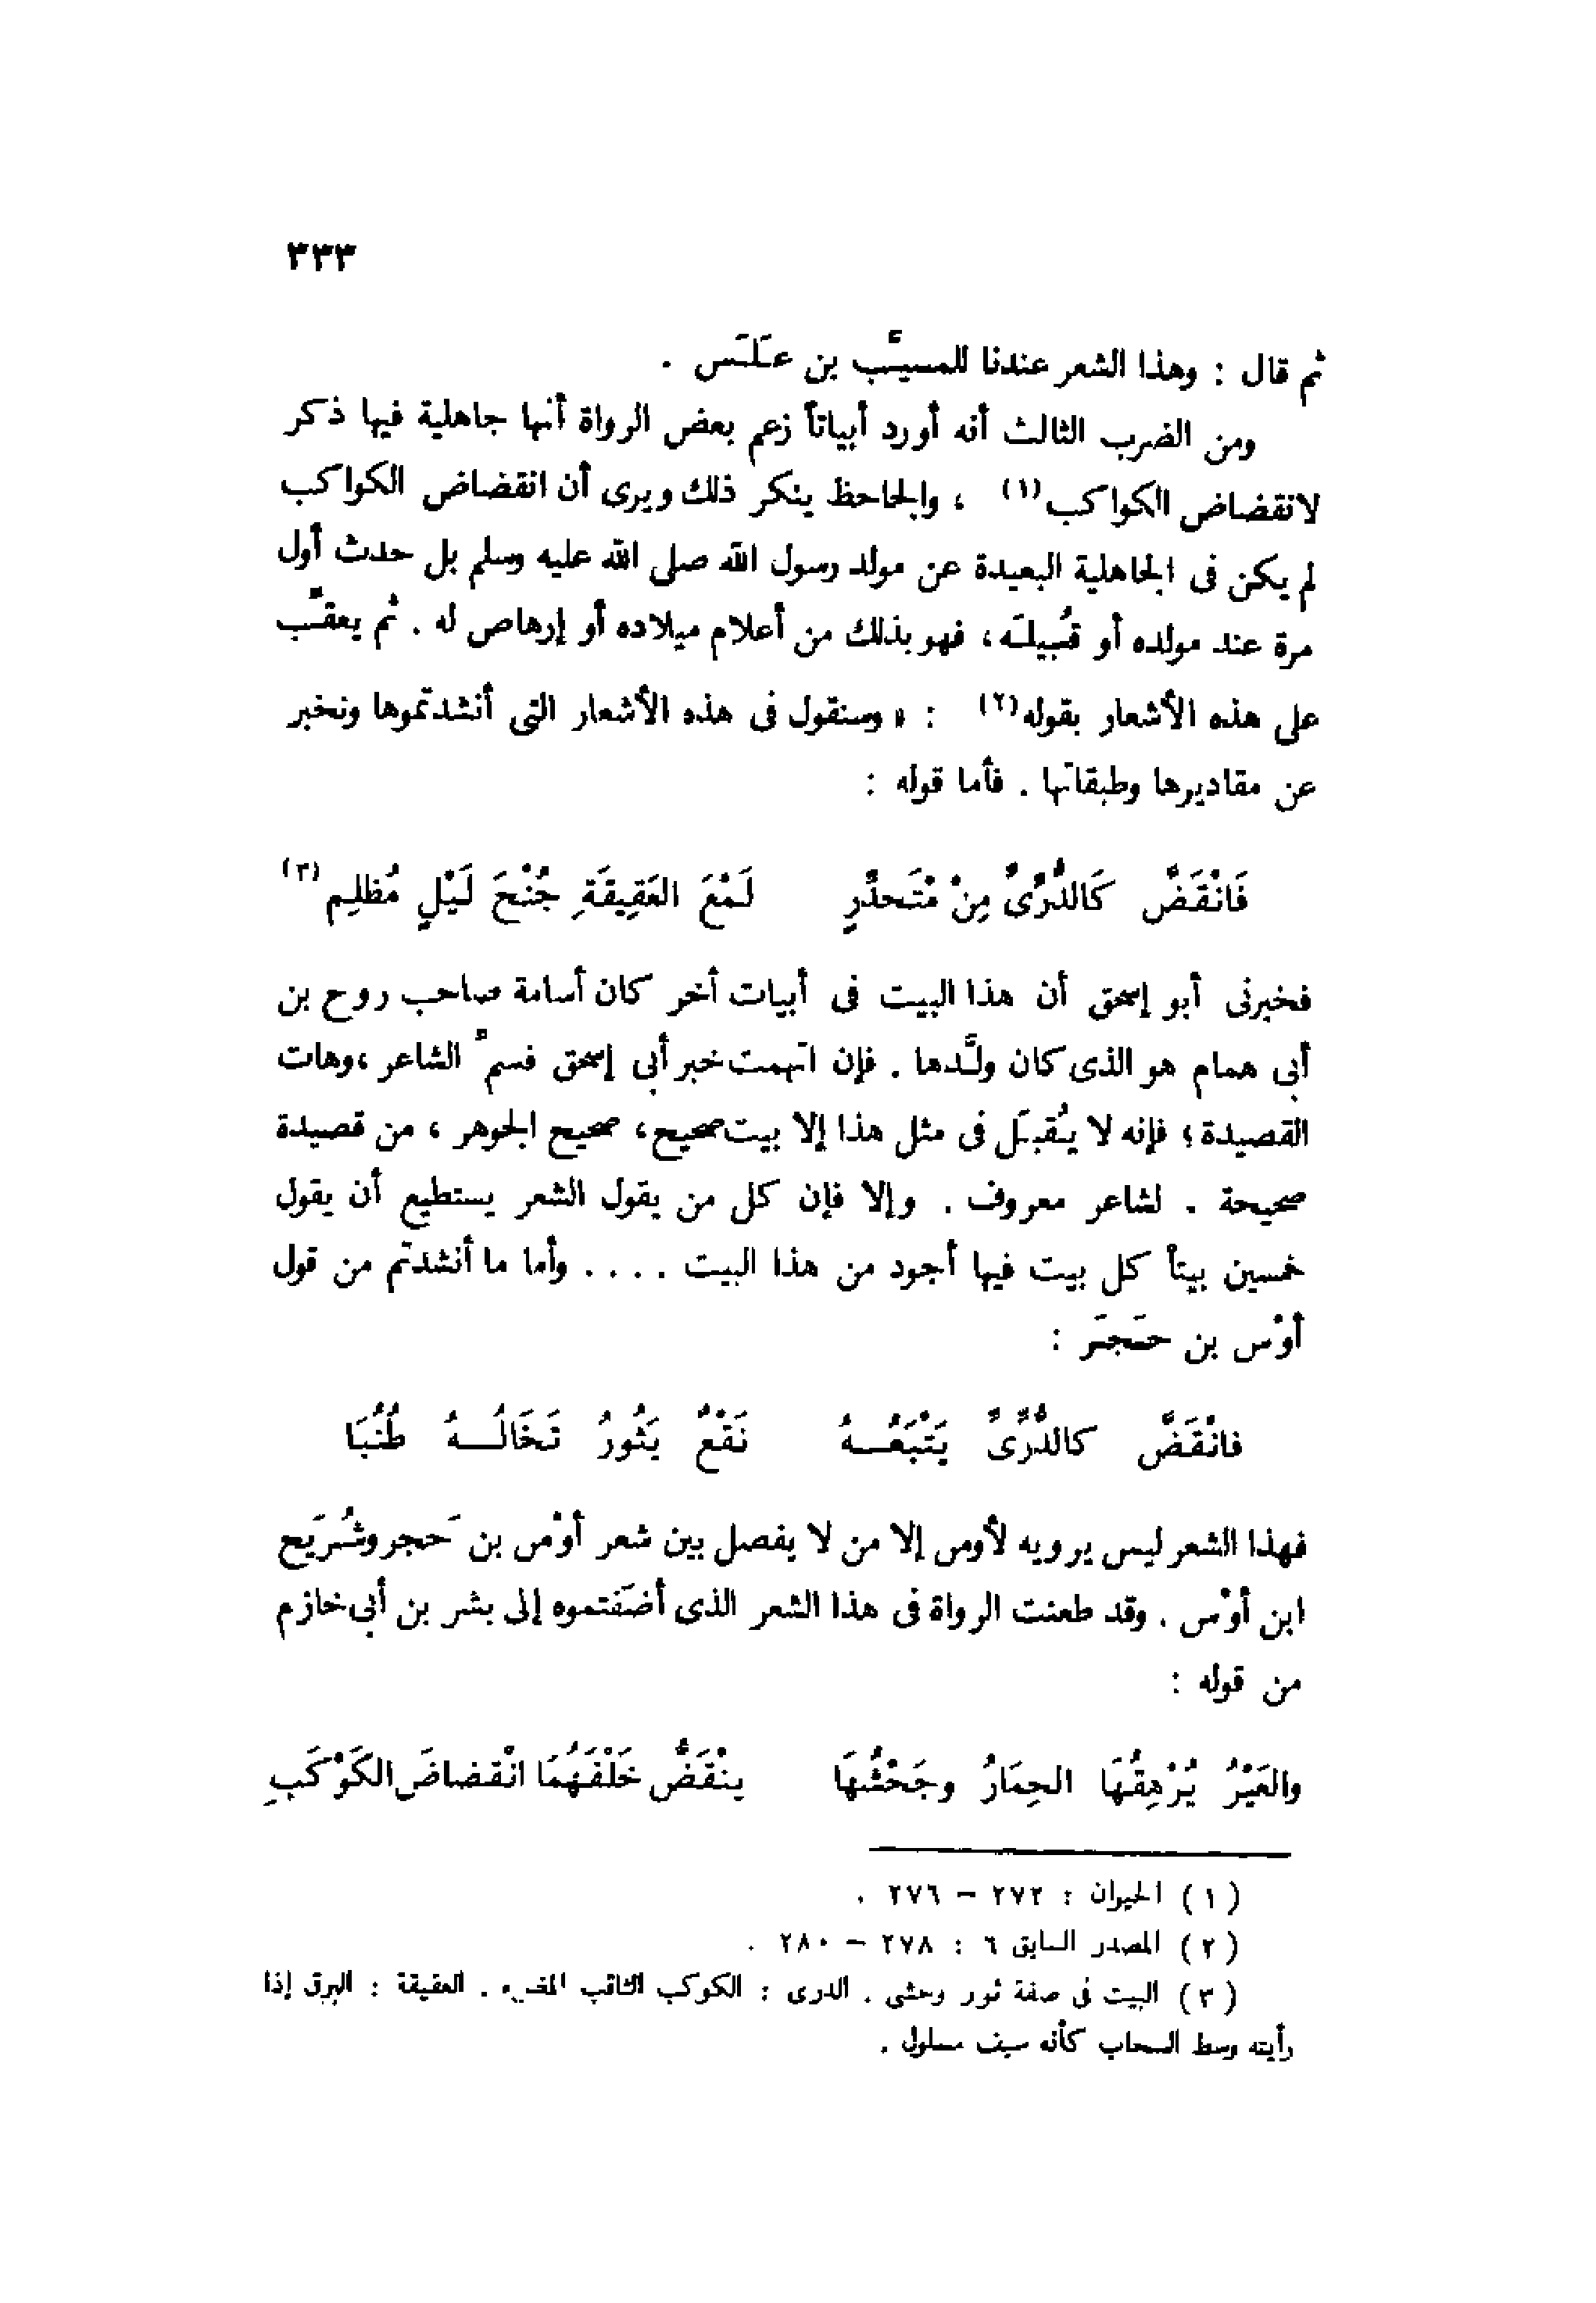 ٣٣٣
ثم قال : وهذا الشعر عندنا للمسيَّب بن عَلَس .
ومن الضرب الثالث أنه أورد أبياتاً زعم بعض الرواة أنها جاهلية فيها ذكر
لانقضاض الكواكب(١) ، والجاحظ ينكر ذلك ويرى أن انقضاض الكواكب
لم يكن فى الجاهلية البعيدة عن مولد رسول الله صلى الله عليه وسلم بل حدث أول
مرة عند مولده أو قُبيلَه ، فهو بذلك من أعلام ميلاده أو إرهاص له . ثم يعقِّب
على هذه الأشعار بقوله(٢) : « وسنقول فى هذه الأشعار التى أنشدتموها ونخبر
عن مقاديرها وطبقاتها . فأما قوله :
فَانْقَضَّ كَالدُّرِّىِّ مِنْ مُتَحدِّرٍ لَمْعَ العَقِيقَةِ جُنْحَ لَيْلٍ مُظلِم(٣)
فخبرنى أبو إسحق أن هذا البيت فى أبيات أخر كان أسامة صاحب روح بن
أبى همام هو الذى كان ولَّدها . فإن اتهمت خبر أبى إسحق فسمِّ الشاعر ، وهات
القصيدة ؛ فإنه لا يُقبَل فى مثل هذا إلا بيت صحيح ، صحيح الجوهر ، من قصيدة
صحيحة . لشاعر معروف . وإلا فإن كل من يقول الشعر يستطيع أن يقول
خمسين بيتاً كل بيت فيها أجود من هذا البيت . . . . وأما ما أنشدتم من قول
أوْس بن حَجَر :
فانْقَضَّ كالدُّرِّىِّ يَتْبَعُـــهُ نَقْعٌ يَثُورُ تَخَالُـــهُ طُنُبَا
فهذا الشعر ليس يرويه لأوس إلا من لا يفصل بين شعر أوْس بن حَجر وشُرَيح
ابن أوْس . وقد طعنت الرواة فى هذا الشعر الذى أضَفتموه إلى بشر بن أبى خازم
من قوله :
والعَيْرُ يُرْهِقُهَا الحِمَارُ وجَحْشُهَا ينْقَضُّ خَلْفَهُمَا انْقضاضَ الكَوْكَبِ
( ١ ) الحيوان : ٢٧٢ – ٢٧٦ .
( ٢ ) المصدر السابق ٦ : ٢٧٨ – ٢٨٠ .
( ٣ ) البيت فى صفة ثور وحشى . الدرى : الكوكب الثاقب المضىء . العقيقة : البرق إذا
رأيته وسط السحاب كأنه سيف مسلول .